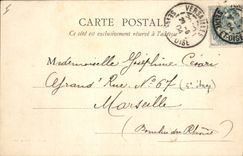 CARTE POSTALE
Ce côté est exclusivement réservé à l'adresse
VERSAILLES
SEINE-ET-OISE
Mademoiselle Joséphine Cesari
Grand' Rue Nº 67
Marseille
(Bouches du Rhône)